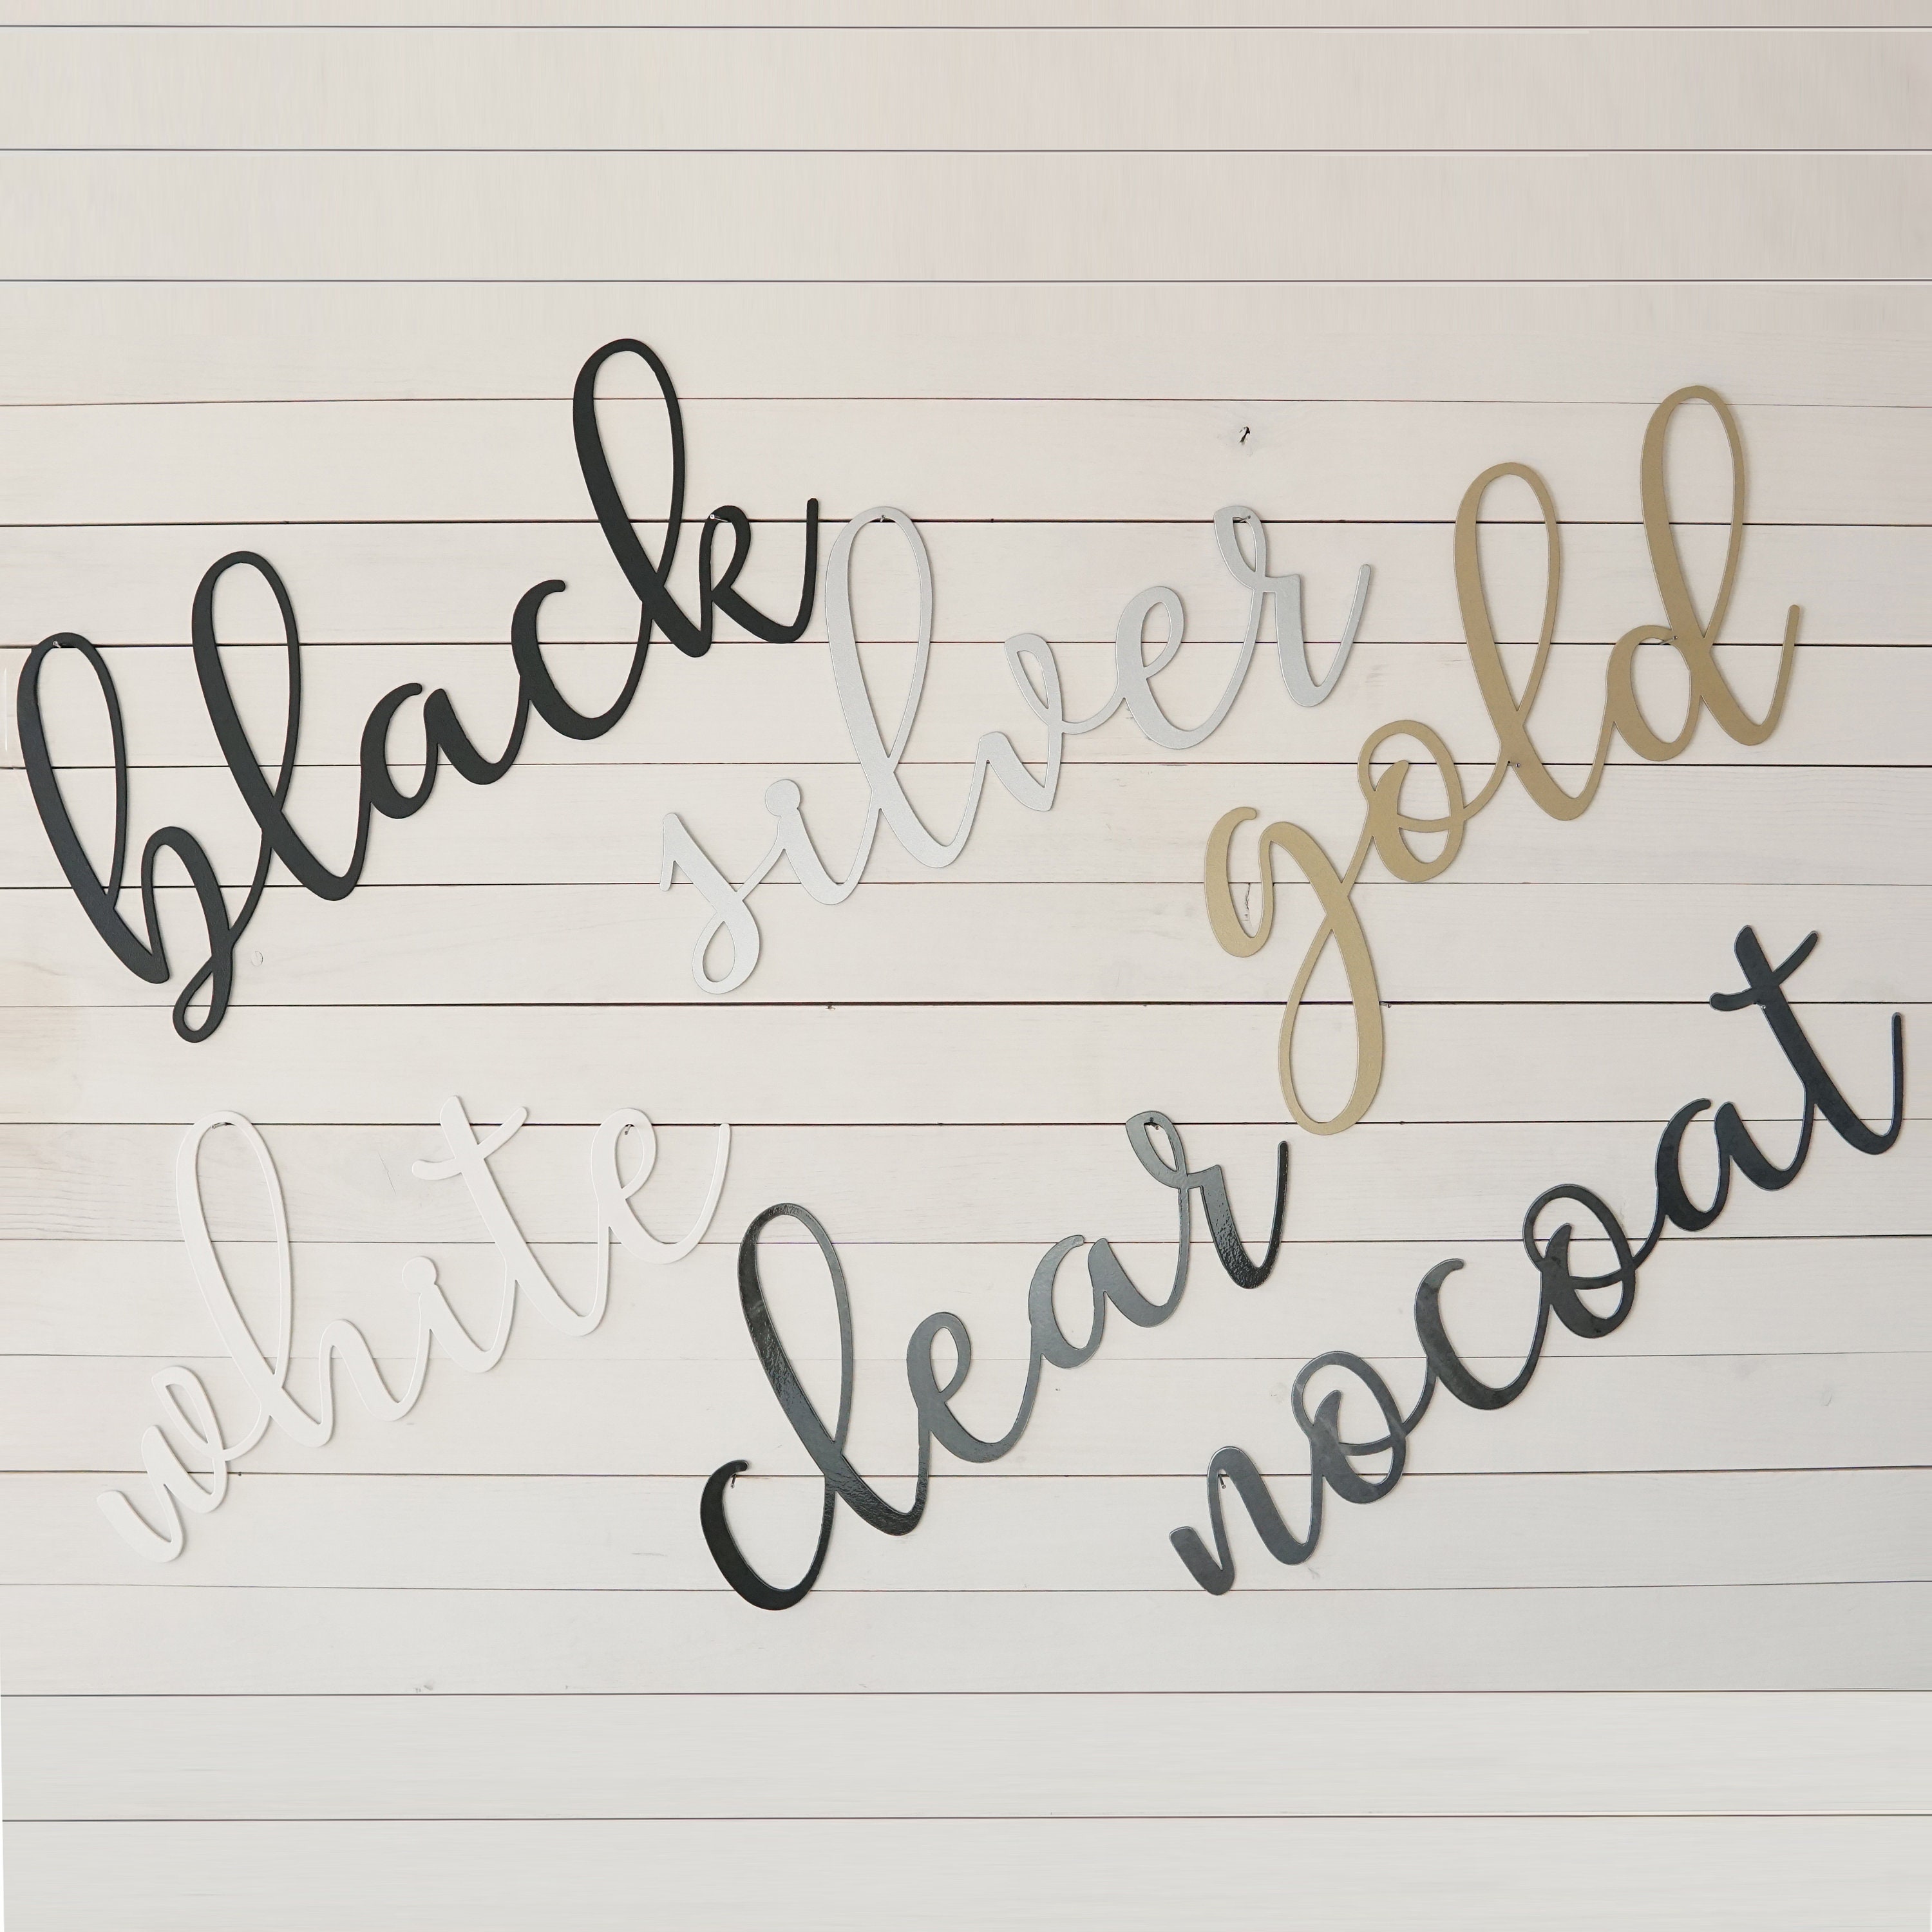 black silver gold
white clear nocoat